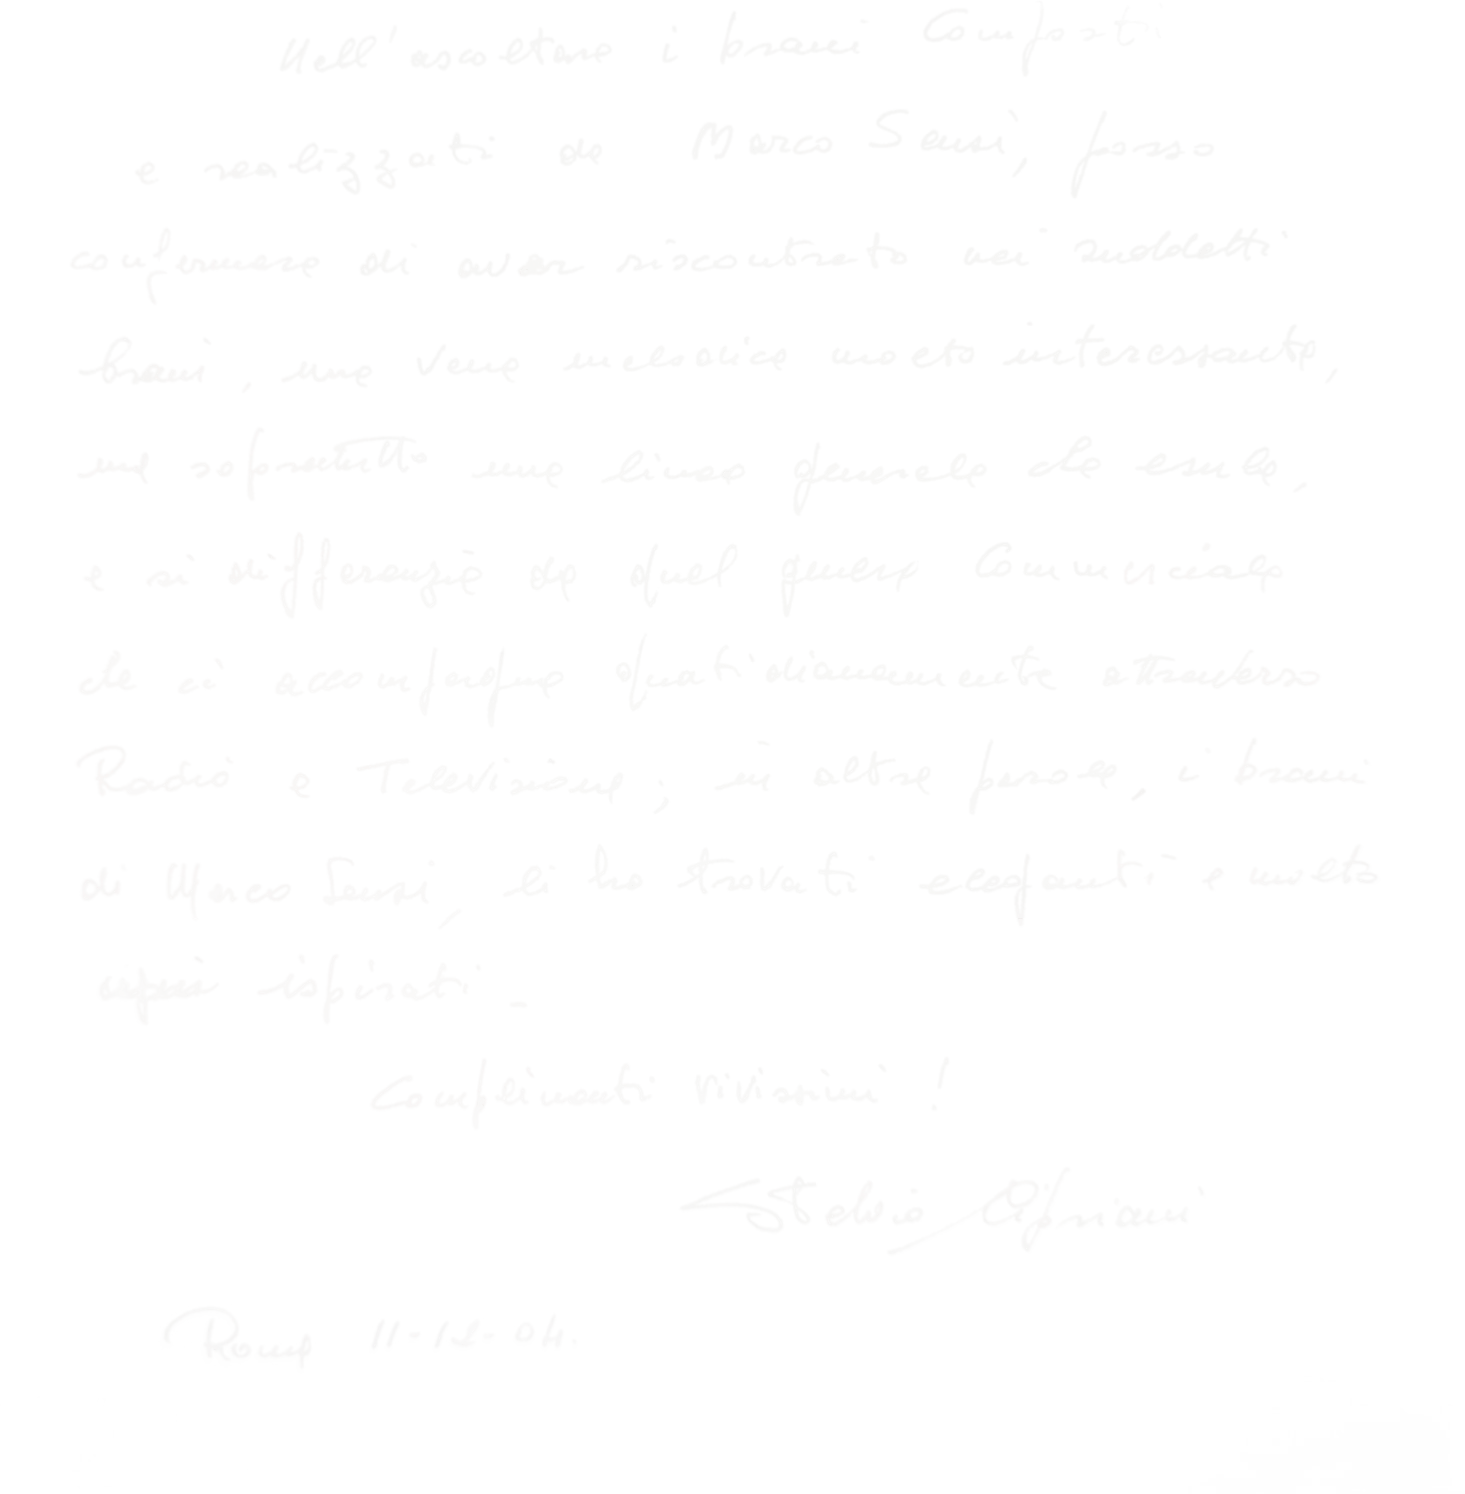 Nell'ascoltare i brani composti
e realizzati da Marco Sensi, posso
confermare di aver riscontrato nei suddetti
brani, una vena melodica molto interessante,
ma sopratutto una linea generale che esula,
e si differenzia da quel genere commerciale
che ci accompagna quotidianamente attraverso
Radio e Televisione; in altre parole, i brani
di Marco Sensi, li ho trovati eleganti e molto
ispirati -
Complimenti vivissimi!
Stelvio Cipriani
Roma 11-12-04.